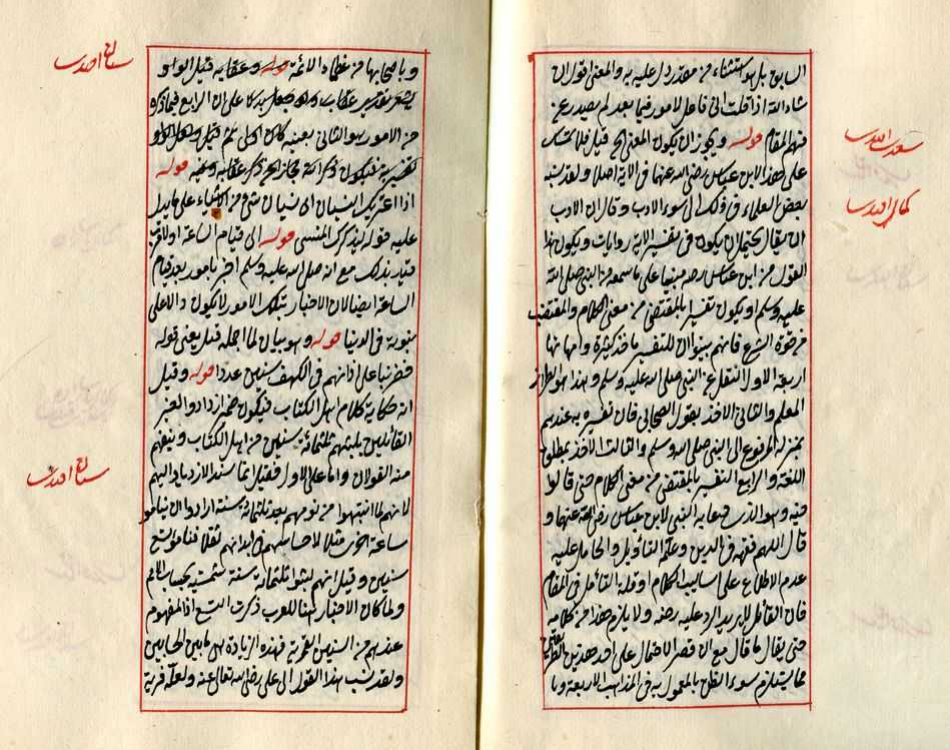 السابق بل هو استثناء من مقدر دل عليه به والمعنى اقول ان
شاء الله اذا قلت انى فاعل لامور فيما بعد لم يصدر عن
فهم المقام قوله ويجوز ان يكون المعنى الخ قيل فلا تمسك
على هذا لابن عباس رضى الله عنها فى الاية اصلا ولقد نسبه
بعض العلماء فى ذلك الى سوء الادب وقال ان الادب
ان يقال يحتمل ان يكون فى تفسير الاية روايات ويكون هذا
القول من ابن عباس رضه مبنيا على ما سمعه من النبى صلى الله
عليه وسلم او يكون تفسيرا بالمقتضى من معنى الكلام والمقتضب
من قوة الشرع فانهم بينوا ان للتفسير مآخذ كثيرة وامهاتها
اربعة الاول النقل عن النبى صلى الله عليه وسلم وهذا هو الطراز
المعلم والثانى الاخذ بقول الصحابى فان تفسيره عندهم
بمنزلة المرفوع الى النبى صلى الله وسلم والثالث الاخذ بمطلق
اللغة والرابع التفسير بالمقتضى من معنى الكلام حتى قالوا
فيه وهو الذى دعا به النبى لابن عباس رضى الله عنها و
قال اللهم فقهه فى الدين وعلمه التأويل والحامل عليه
عدم الاطلاع على اساليب الكلام او قلة التأمل فى المقام
فان القائل لا يريد الرد عليه رضه ولا يلزم هذا من كلامه
حتى يقال ما قال مع ان قصر الاحتمال على احد هذين
مما يستلزم سوء الظن بالمعمول به فى المذاهب الاربعة وبا
سعدى افندى
كمال افندى
وباصحابها من عظماء الائمة قوله وعقابه قيل الواو
يشعر بتقدير عقاب وهو جعل بدكا على ان الرابع فيما ذكره
من الامور هو الثانى بعينه كان اولى ثم قيل وجعل الواو
تفسيرية فيكون ذكر الله مجازا عن ذكر عقابه قوله
اذا اعتريك النسيان اى نسيان شئ من الاشياء على ما يدل
عليه قوله ليذكرك المنسى قوله الى قيام الساعة اولا قرب
قيد بذلك مع انه صلى الله عليه وسلم اخبر بامور بعد قيام
الساعة ايضا لان الاخبار بتلك الامور لا يكون دالا على
نبوته فى الدنيا قوله وهو بيان لما اجمله قبل يعنى قوله
فضربنا على اذانهم فى الكهف سنين عددا قوله وقيل
انه حكاية كلام اهل الكتاب فيكون ضمير ازدادوا لغير
القائلين بلبثهم ثلثمائة سنين من اهل الكتاب
منه القولان واما على الاول فقيل انما سند الازدياد اليهم
لانهم لما انتبهوا من نومهم بعد ثلثمائة سنة ارادوا ان يناموا
ساعة اخرى مثلا لاحساسهم فى ابدانهم ثقلا فناموا تسع
سنين وقيل انهم لبثوا ثلثمائة سنة شمسية بحساب الامم
ولما كان الاخبار ههنا للعرب ذكرت التسع اذ المفهوم
عندهم من السنين القمرية فهذه الزيادة هى ما بين الحسابين
ولقد نسب هذا القول الى على رضى الله تعالى عنه ولعله فرية